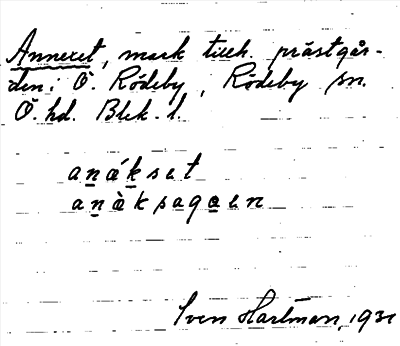 Annexet, mark tillh. prästgår-
den i Ö. Rödeby, Rödeby sn.
Ö. hd. Blek. l.
anákset
anàksagoen
Sven Hartman, 1931